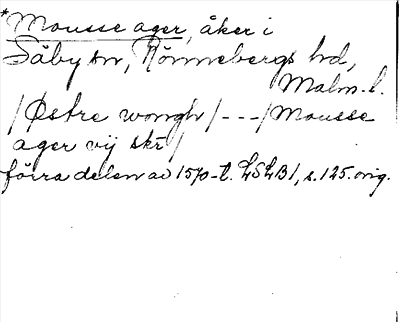 *Mousse ager, åker i
Säby sn, Rönnebergs hd,
Malm. l.
/Østre wongh/---/Mousse
ager vij skr/
förra delen av 1570-t. LSLB1, s. 125. orig.